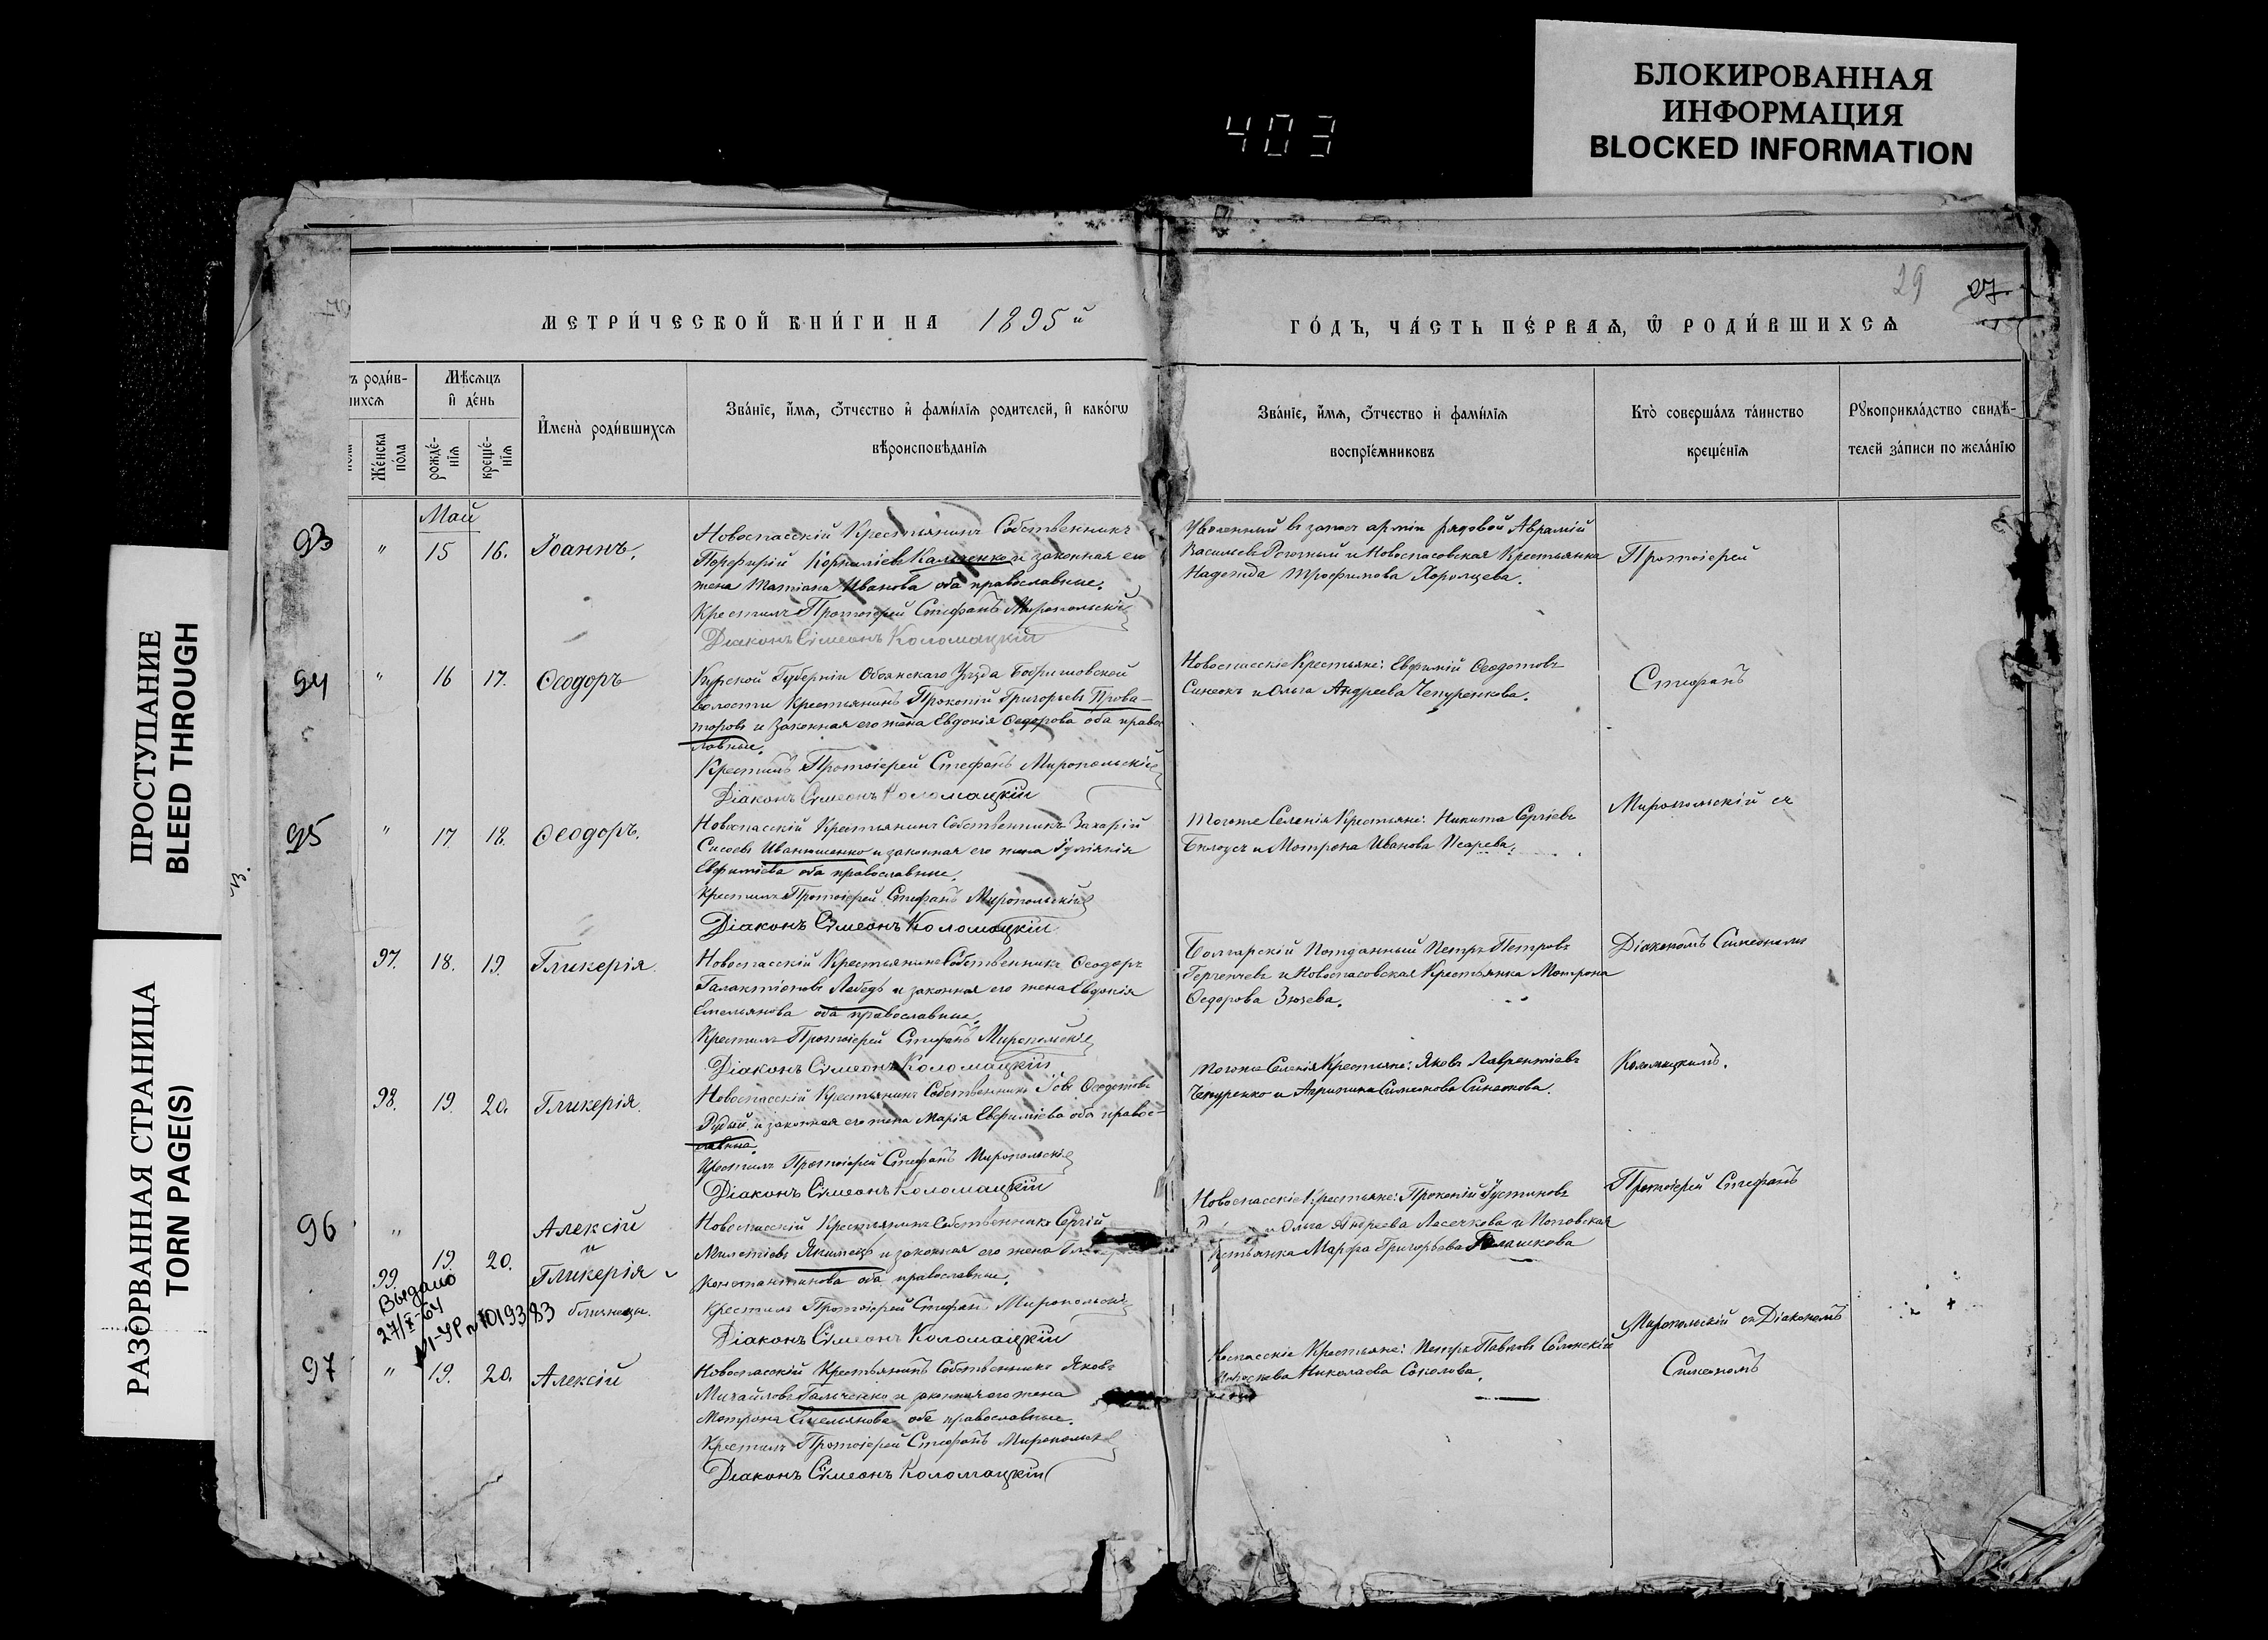 БЛОКИРОВАННАЯ
ИНФОРМАЦИЯ
BLOCKED INFORMATION
403
ПРОСТУПАНИЕ
BLEED THROUGH
РАЗОРВАННАЯ СТРАНИЦА
TORN PAGE(S)
29 27
МЕТРИ́ЧЕСКОЙ КНИ́ГИ НА 1895й
ГО́ДЪ, ЧА́СТЬ ПЕ́РВАѦ, Ѿ РОДИ́ВШИХСѦ
ъ роди́в-
шихсѧ
Же́нска по́ла
Мѣ́сѧцъ и҆ де́нь
рожде́-нїѧ
креще́-нїѧ
И҆мена̀ роди́вшихсѧ
Зва́нїе, и҆́мѧ, ѻ҆́тчество и҆ фами́лїѧ родителей, и҆ како́гѡ
вѣроисповѣ́данїѧ
Зва́нїе, и҆́мѧ, ѻ҆́тчество и҆ фами́лїѧ
воспрїе́мниковъ
Кто̀ соверша́лъ та́инство
креще́нїѧ
Рꙋкоприкла́дство свидѣ́-
телей за́писи по жела́нїю
Май
93 " 15 16. Іоаннъ.
Новоспасскій Крестьянинъ Собственникъ
Порфирій Корниліевъ Калченко и законная его
жена Татіана Иванова оба православные.
Крестилъ Протоіерей Стефанъ Миропольскій
Діаконъ Сѵмеонъ Коломацкій
Уволенный въ запасъ арміи рядовой Авраамій
Васильевъ и Новоспасовская Крестьянка
Надежда Трофимова Хорольцева.
Протоіерей
94 " 16 17. Ѳеодоръ
Курской Губерніи Обоянскаго Уѣзда
волости Крестьянинъ Прокопій Григорьевъ Прова-
торовъ и Законная его жена Евдокія Ѳедорова оба право
славные.
Крестилъ Протоіерей Стефанъ Миропольскій
Діаконъ Сѵмеонъ Коломацкій
Новоспасскіе Крестьяне: Евфимій Ѳеодотовъ
Синеокъ и Ольга Андреева Чепуренкова.
Стефанъ
95 " 17. 18. Ѳеодоръ.
Новоспасскій Крестьянинъ Собственникъ Захарій
Сысоевъ Иванющенко и законная его жена Іуліанія
Евфиміева оба православные.
Крестилъ Протоіерей Стефанъ Миропольскій
Діаконъ Сѵмеонъ Коломацкій
Тогоже Селенія Крестьяне: Никита Сергіевъ
Бѣлоусъ и Мотрона Иванова Писарева.
Миропольскій съ
97. 18. 19. Гликерія.
Новоспасскій Крестьянинъ Собственникъ Ѳеодоръ
Галактіоновъ Лебедь и законная его жена Евдокія
Емельянова оба православные.
Крестилъ Протоіерей Стефанъ Миропольскій
Діаконъ Сѵмеонъ Коломацкій
Болгарскій Подданный Петръ Петровъ
и Новоспасовская Крестьянка Мотрона
Ѳедорова Зюзева.
Діакономъ Симеономъ
98. 19. 20. Гликерія.
Новоспасскій Крестьянинъ Собственникъ Іовъ Ѳеодотовъ
Рудый и законная его жена Марія Евфиміева оба право-
славные.
Крестилъ Протоіерей Стефанъ Миропольскій
Діаконъ Сѵмеонъ Коломацкій
Тогоже Селенія Крестьяне: Яковъ Лаврентіевъ
Чепуренко и Агрипина Симеонова Синеокова.
Коломацкимъ.
96 " Алексій
и
99. 19. 20. Гликерія
близнецы.
Выдано
27/X-64
1-УР №1019383
Новоспасскій Крестьянинъ Собственникъ Сергій
Милетіевъ Якимецъ и законная его жена
Константинова оба православные.
Крестилъ Протоіерей Стефанъ Миропольскій
Діаконъ Сѵмеонъ Коломацкій
Новоспасскіе Крестьяне: Прокопій Іустиновъ
и Ольга Андреева Ласечкова и Поповская
Крестьянка Марѳа Григорьева
Протоіерей Стефанъ
97 " 19. 20. Алексій
Новоспасскій Крестьянинъ Собственникъ Яковъ
Михайловъ Гальченко и законная его жена
Мотрона Емельянова оба православные.
Крестилъ Протоіерей Стефанъ Миропольск
Діаконъ Сѵмеонъ Коломацкій
спасскіе Крестьяне: Петръ Павловъ Солонскій
Николаева Соколова.
Миропольскій съ Діакономъ
Симеономъ